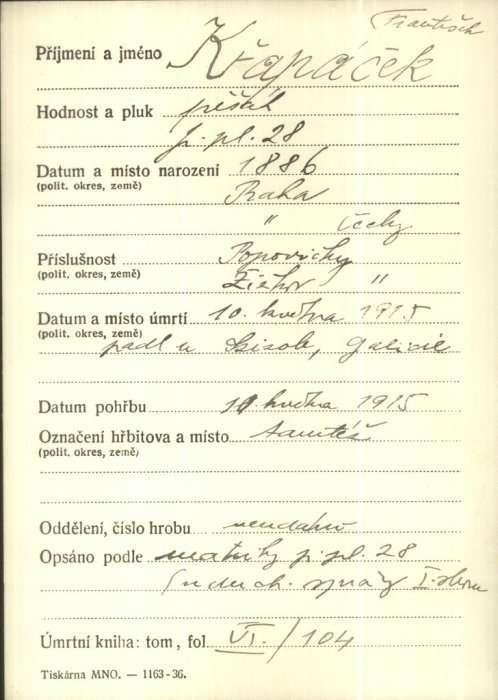 František
Příjmení a jméno Křapáček
Hodnost a pluk pěšák
p. pl. 28
Datum a místo narození 1886
(polit. okres, země) Praha
" Čechy
Příslušnost Popovičky
(polit. okres, země) Žižkov "
Datum a místo úmrtí 10. května 1915
(polit. okres, země)
padl u, Galicie
Datum pohřbu 10. května 1915
Označení hřbitova a místo tamtéž
(polit. okres, země)
Oddělení, číslo hrobu neudáno
Opsáno podle matriky p. pl. 28
duch. správy I.
Úmrtní kniha: tom, fol. VI. / 104
Tiskárna MNO. — 1163-36.